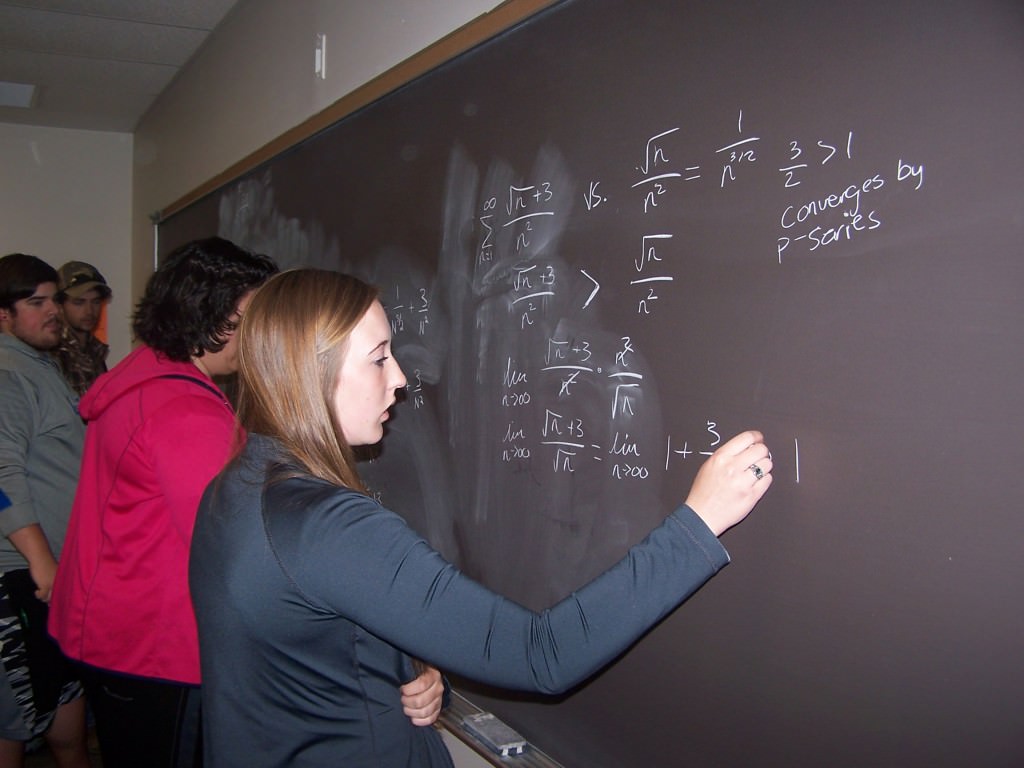 ∞
∑ (√n +3)/n² vs. √n/n² = 1/n^(3/2) 3/2 > 1
n=1
converges by
p-series
(√n +3)/n² > √n/n²
1/n^(3/2) + 3/n²
lim n→∞ (√n +3)/n² · n²/√n
+ 3/n²
lim n→∞ (√n +3)/√n = lim n→∞ 1 + 3 1